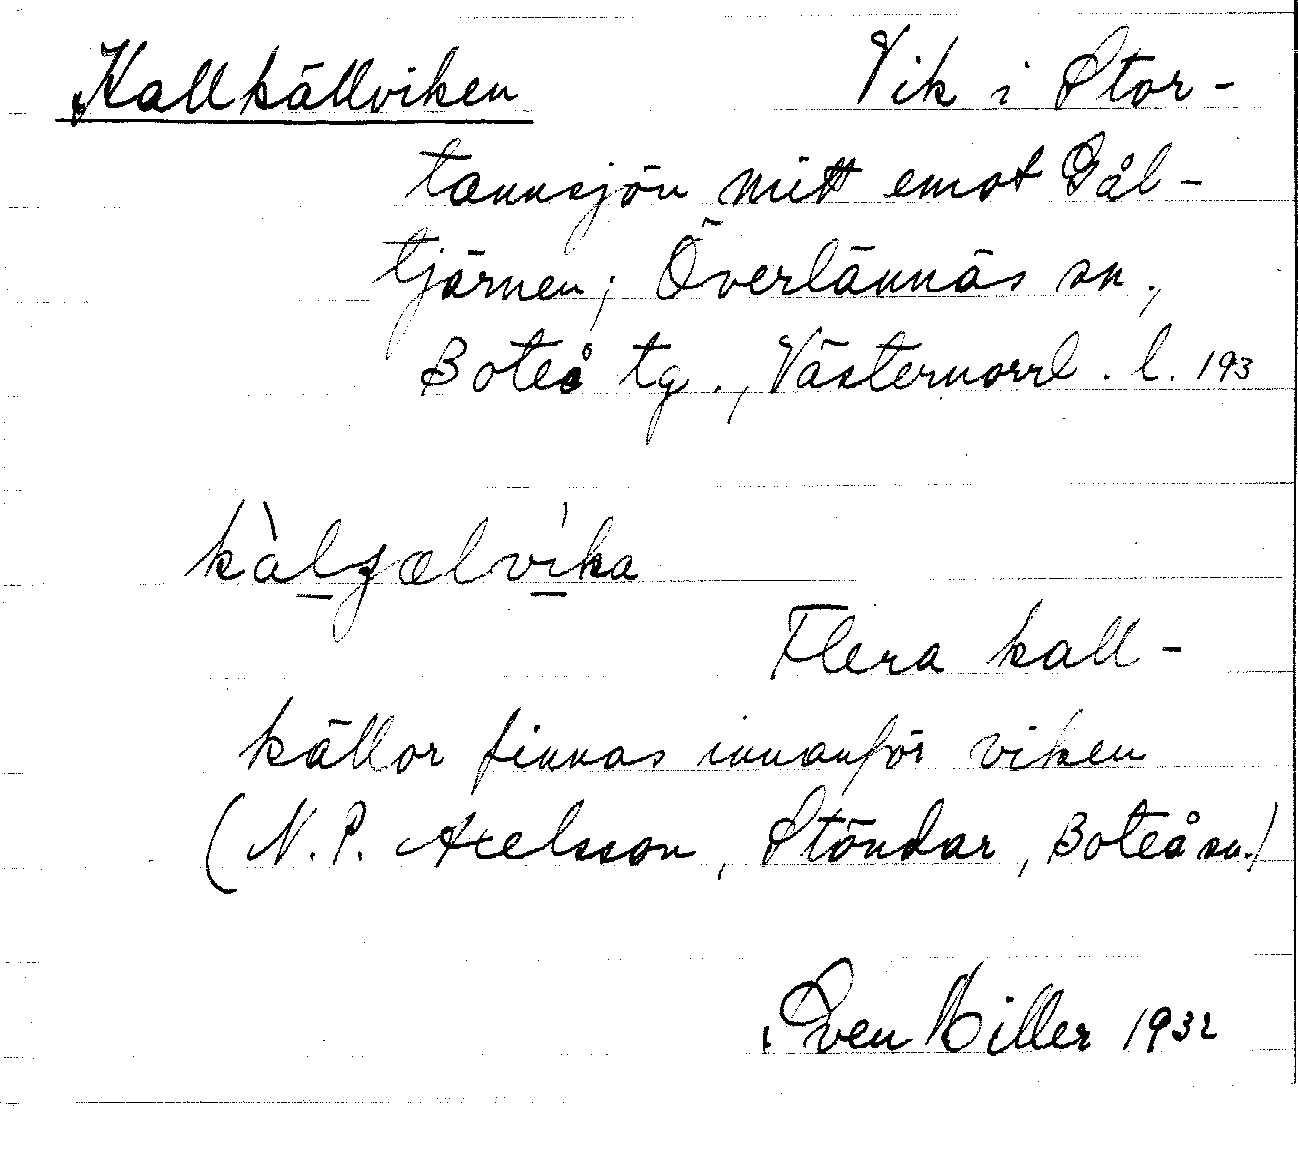 Kallkällviken Vik i Stor-
tannsjön mitt emot Gål-
tjärnen; Överlännäs sn.,
Boteå tg., Västernorrl. l. 193
Flera kall-
källor finnas innanför viken
(N. P. Axelsson, Stöndar, Boteå sn.)
Sven Hiller 1932